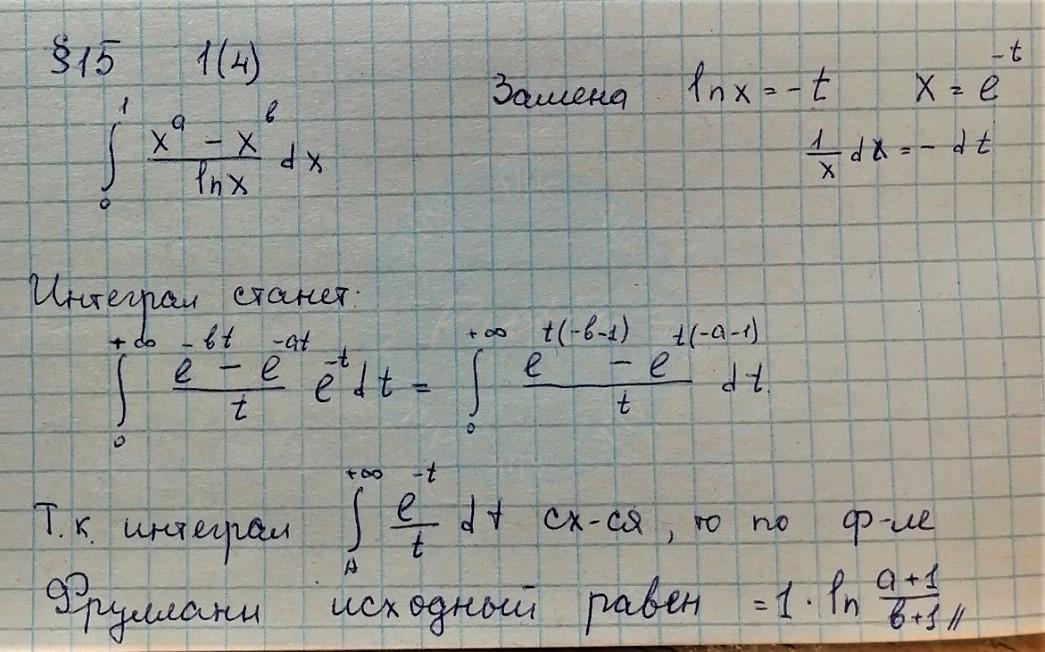 §15 1(4)
∫₀¹ (xᵃ − xᵇ)/(ln x) dx Замена ln x = −t x = e^(−t)
(1/x) dx = − dt
Интеграл станет:
∫₀^(+∞) (e^(−bt) − e^(−at))/t e^(−t) dt = ∫₀^(+∞) (e^(t(−b−1)) − e^(t(−a−1)))/t dt.
Т.к. интеграл ∫_A^(+∞) e^(−t)/t dt сх-ся, то по ф-ле
Фруллани исходный равен = 1 · ln (a+1)/(b+1) //